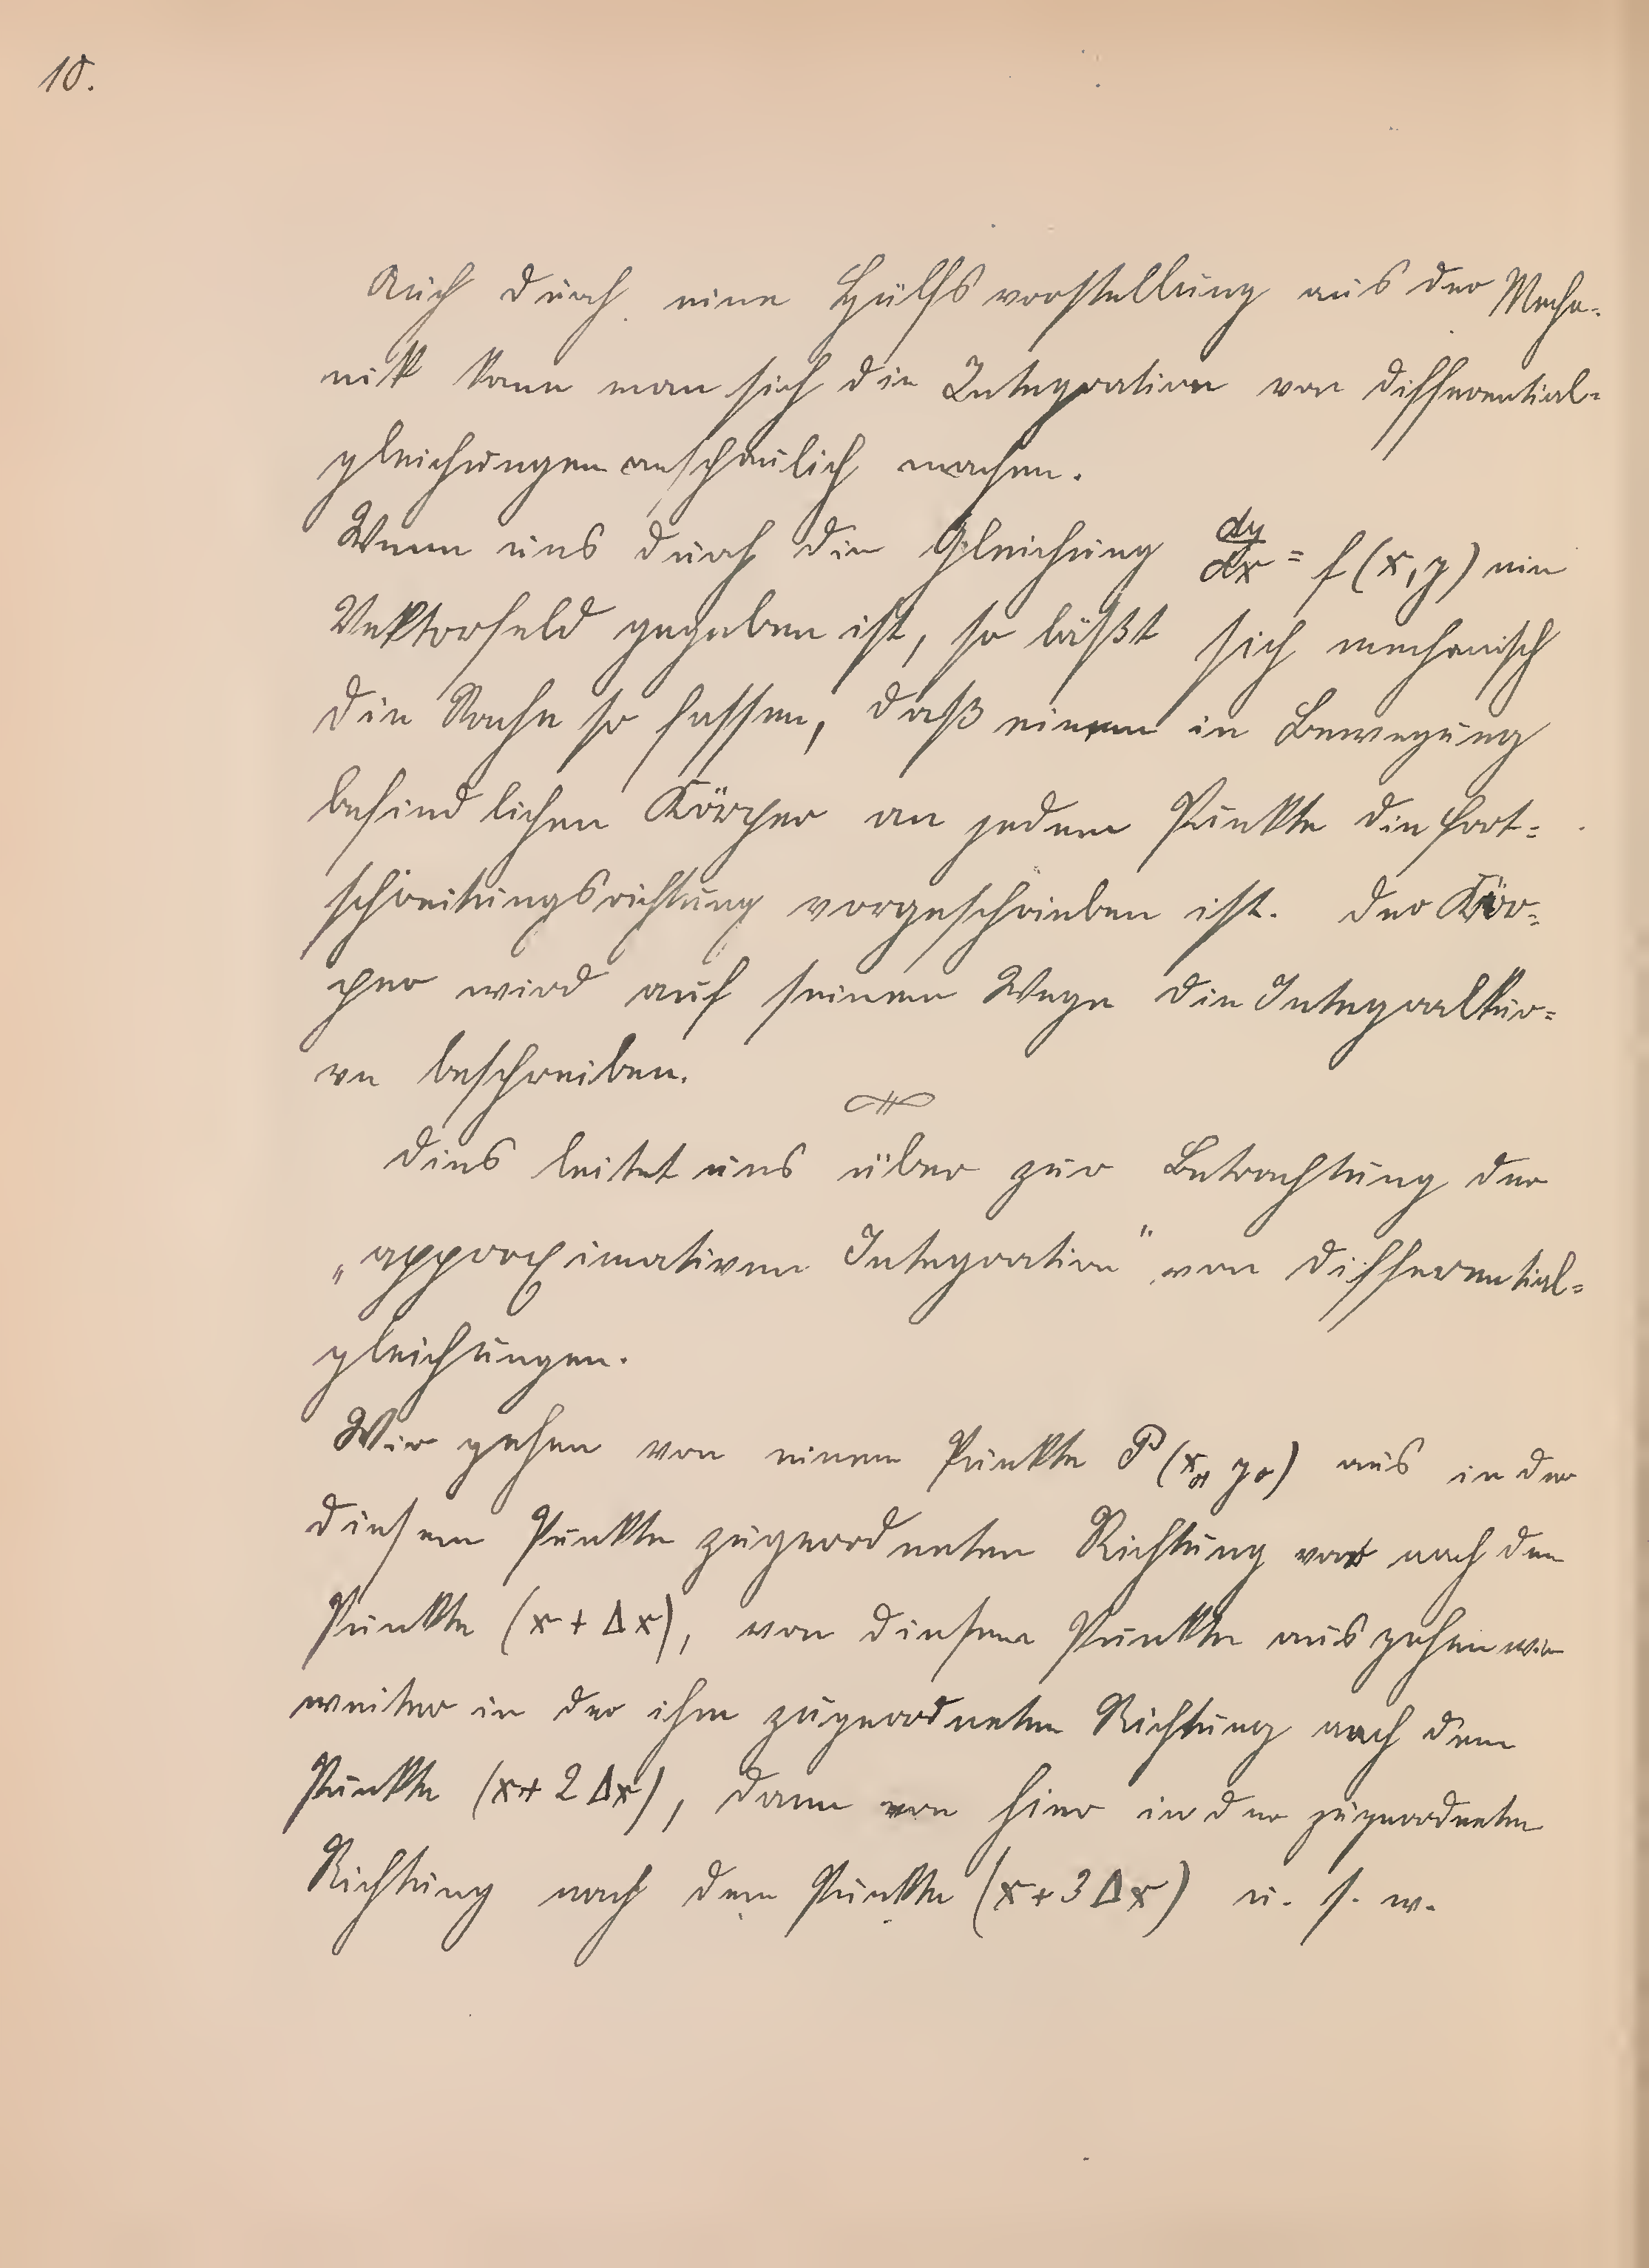 10.
Auch durch eine Hülfsvorstellung aus der Mecha-
nik kann man sich die Integration von Differential-
gleichungen anschaulich machen.
Wenn uns durch die Gleichung dy/dx = f(x,y) ein
Vektorfeld gegeben ist, so läßt sich mechanisch
die Sache so fassen, daß einem in Bewegung
befindlichen Körper an jedem Punkte die Fort-
schreitungsrichtung vorgeschrieben ist. Der Kör-
per wird auf seinem Wege die Integralkur-
ve beschreiben.
Dies leitet uns über zur Betrachtung der
„approximativen Integration" von Differential-
gleichungen.
Wir gehen von einem Punkte P(x₀, y₀) aus in der
diesem Punkte zugeordneten Richtung vor nach dem
Punkte (x + Δx), von diesem Punkte aus gehen wir
weiter in der ihm zugeordneten Richtung nach dem
Punkte (x + 2 Δx), dann von hier in der zugeordneten
Richtung nach dem Punkte (x + 3 Δx) u. s. w.